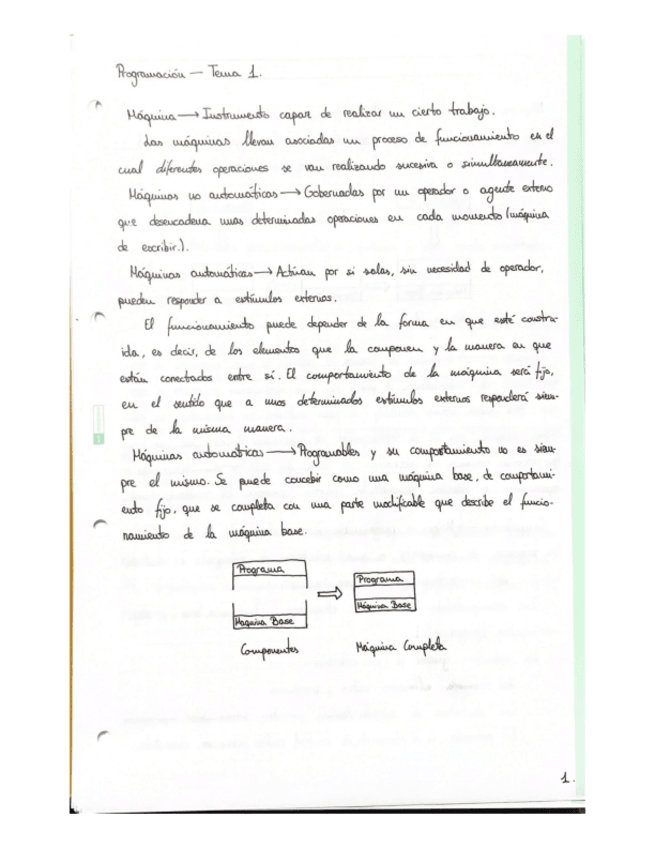 Programación — Tema 1.
Máquina → Instrumento capaz de realizar un cierto trabajo.
Las máquinas llevan asociadas un proceso de funcionamiento en el
cual diferentes operaciones se van realizando sucesiva o simultaneamente.
Máquinas no automáticas → Gobernadas por un operador o agente externo
que desencadena unas determinadas operaciones en cada momento (máquina
de escribir.).
Máquinas automáticas → Actúan por si solas, sin necesidad de operador,
pueden responder a estímulos externos.
El funcionamiento puede depender de la forma en que esté constru-
ida, es decir, de los elementos que la componen y la manera en que
están conectados entre sí. El comportamiento de la máquina será fijo,
en el sentido que a unos determinados estímulos externos responderá siem-
pre de la misma manera.
Máquinas automáticas → Programables y su comportamiento no es siem-
pre el mismo. Se puede concebir como una máquina base, de comportami-
ento fijo, que se completa con una parte modificable que describe el funcio-
namiento de la máquina base.
Programa
Maquina Base
Componentes
⇒
Programa
Máquina Base
Máquina Completa
1.